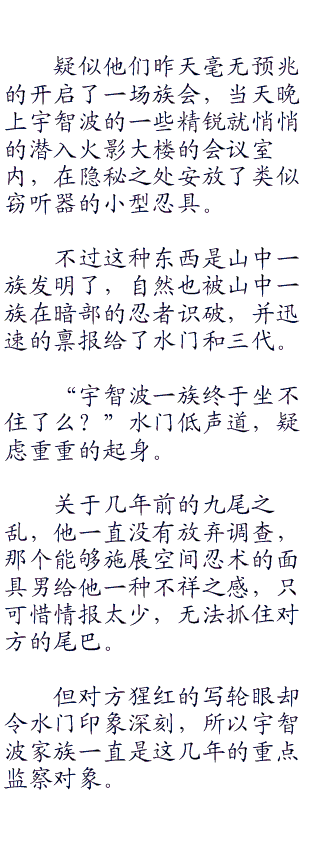 疑似他们昨天毫无预兆
的开启了一场族会，当天晚
上宇智波的一些精锐就悄悄
的潜入火影大楼的会议室
内，在隐秘之处安放了类似
窃听器的小型忍具。
不过这种东西是山中一
族发明了，自然也被山中一
族在暗部的忍者识破，并迅
速的禀报给了水门和三代。
“宇智波一族终于坐不
住了么？”水门低声道，疑
虑重重的起身。
关于几年前的九尾之
乱，他一直没有放弃调查，
那个能够施展空间忍术的面
具男给他一种不祥之感，只
可惜情报太少，无法抓住对
方的尾巴。
但对方猩红的写轮眼却
令水门印象深刻，所以宇智
波家族一直是这几年的重点
监察对象。